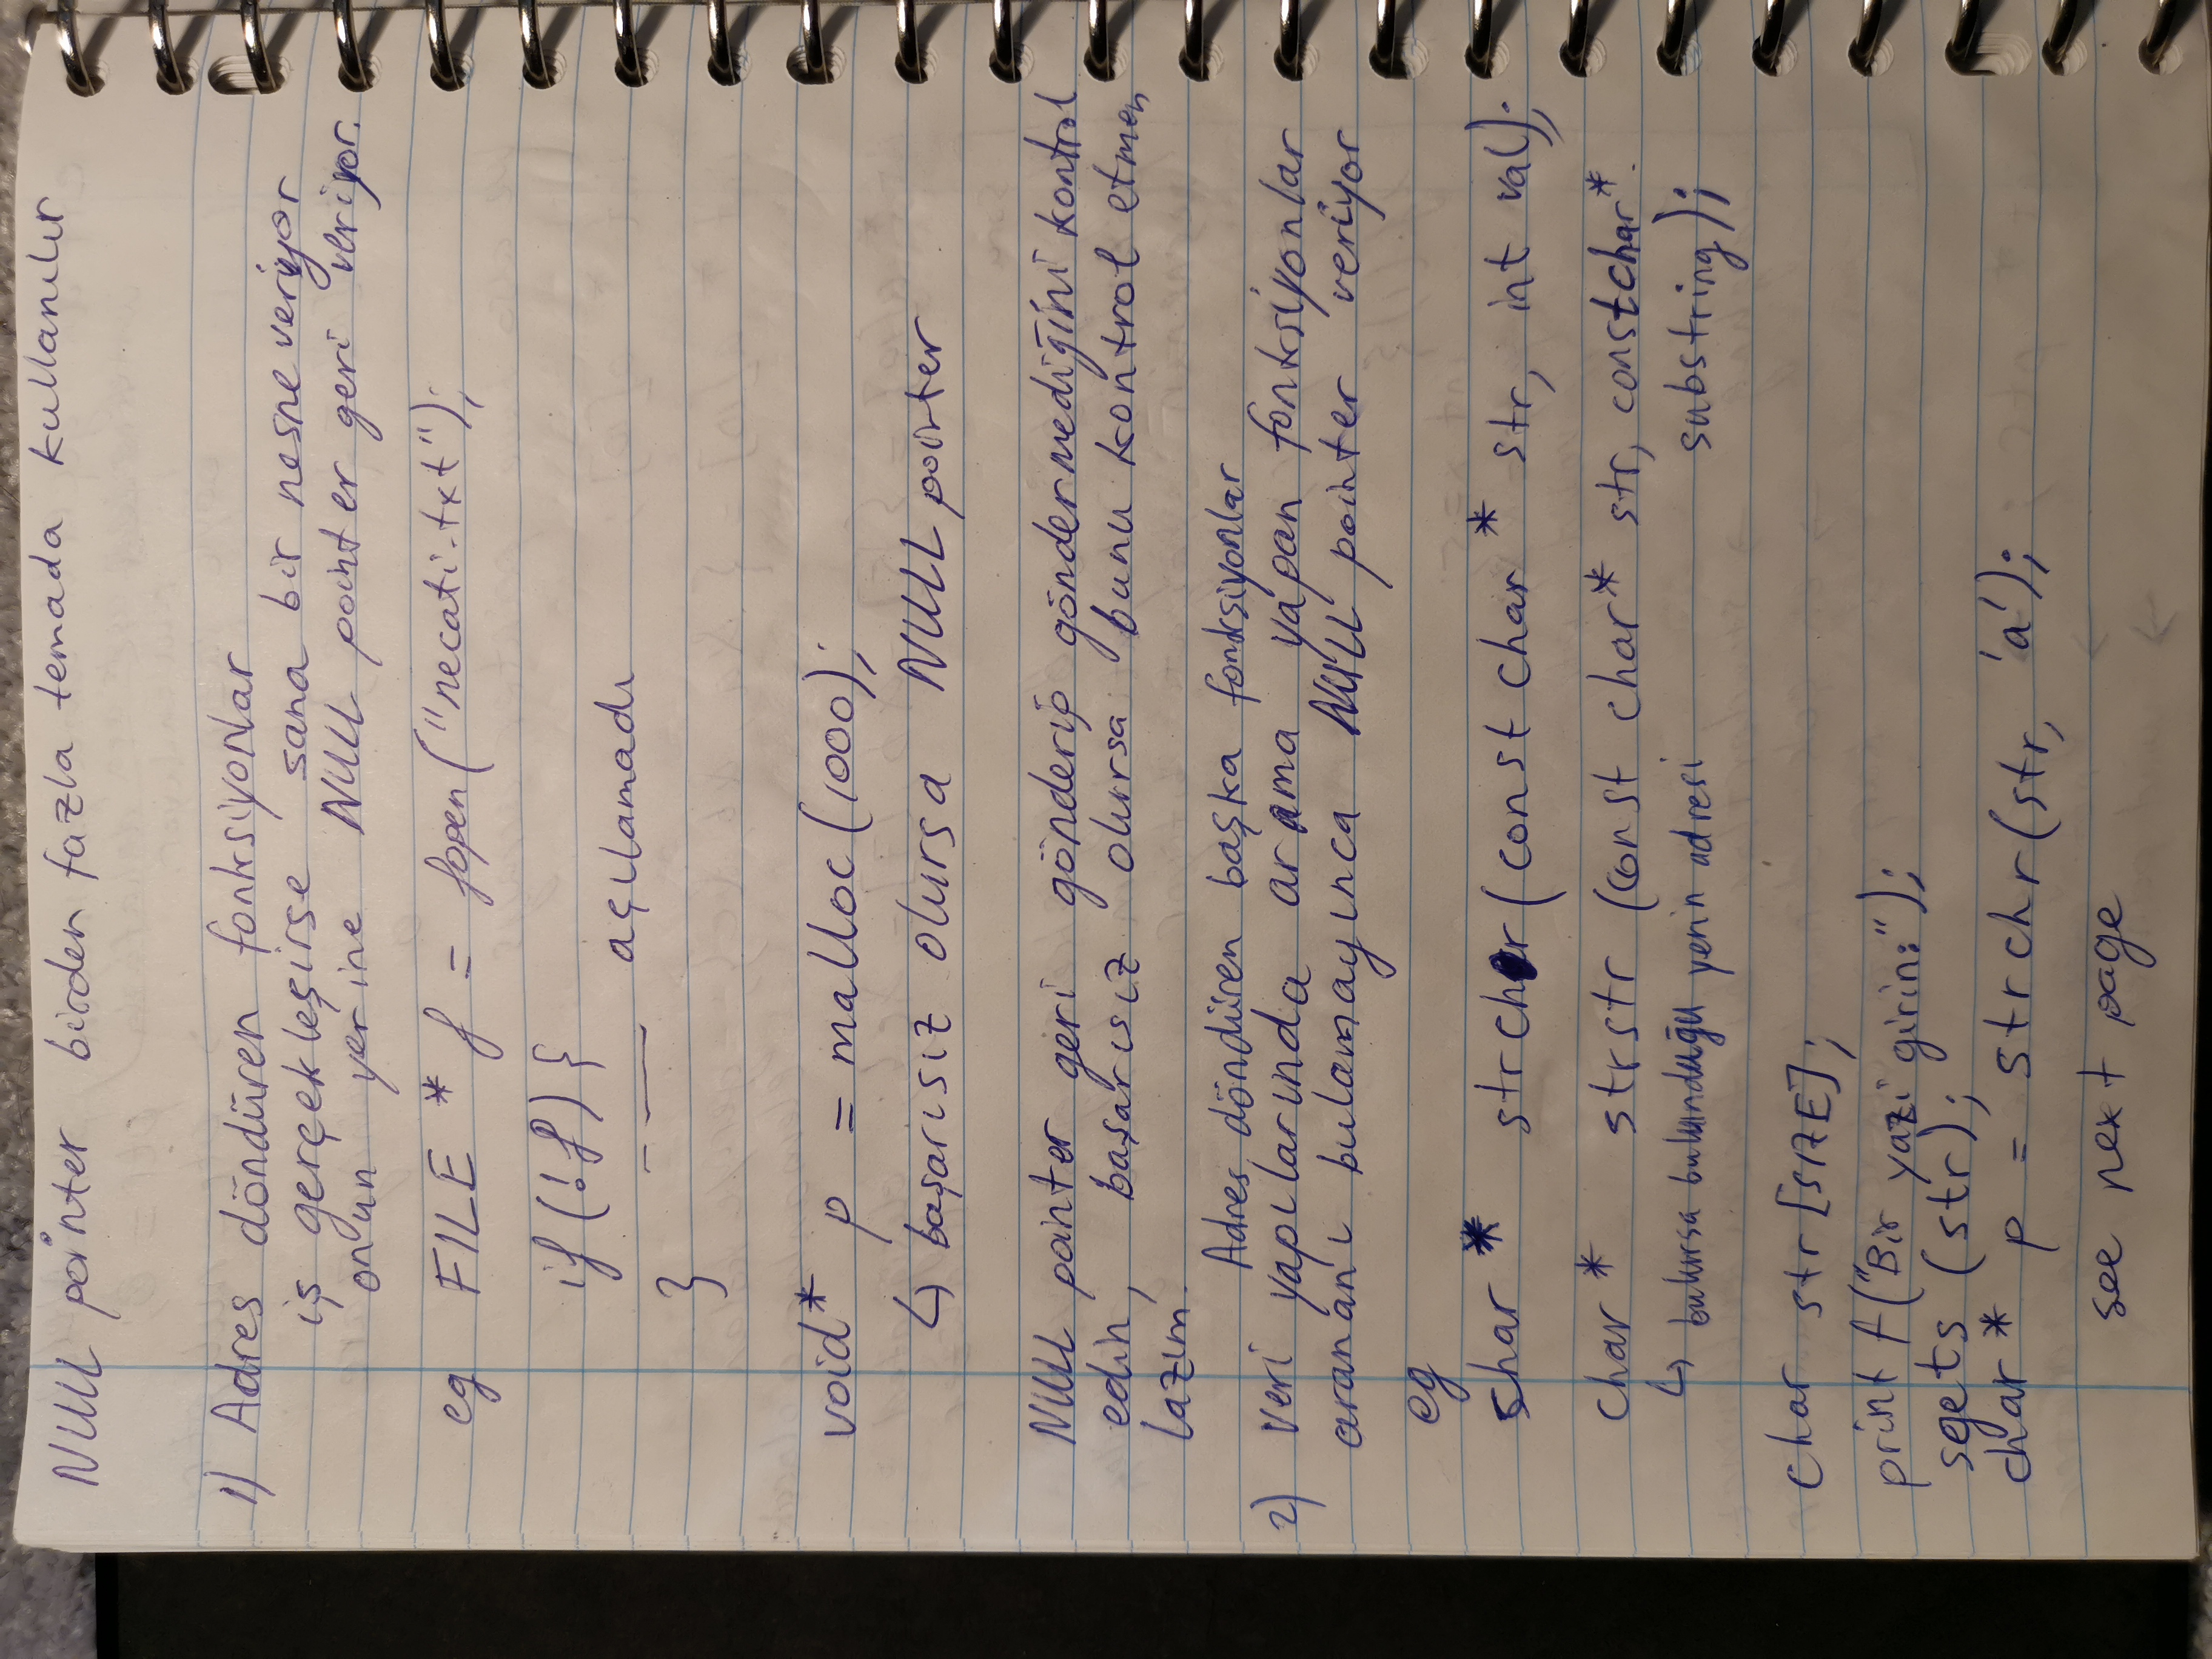 NULL pointer birden fazla temada kullanılır
1) Adres döndüren fonksiyonlar
iş gerçekleşirse sana bir nesne veriyor
onun yerine NULL pointer geri veriyor.
eg FILE * f = fopen("necati.txt");
if (!f) {
açılamadı
}
void* p = malloc(1000);
↳ başarısız olursa NULL pointer
NULL pointer geri gönderip göndermediğini kontrol
edin, başarısız olursa bunu kontrol etmen
lazım.
Adres döndüren başka fonksiyonlar
2) Veri yapılarında arama yapan fonksiyonlar
arananı bulamayınca NULL pointer veriyor
eg
char * strchr(const char * str, int val);
char * strstr (const char* str, const char*
↳ bulursa bulunduğu yerin adresi substring);
char str[SIZE];
printf("Bir yazi girin:");
sgets (str);
char * p = strchr(str, 'a');
see next page